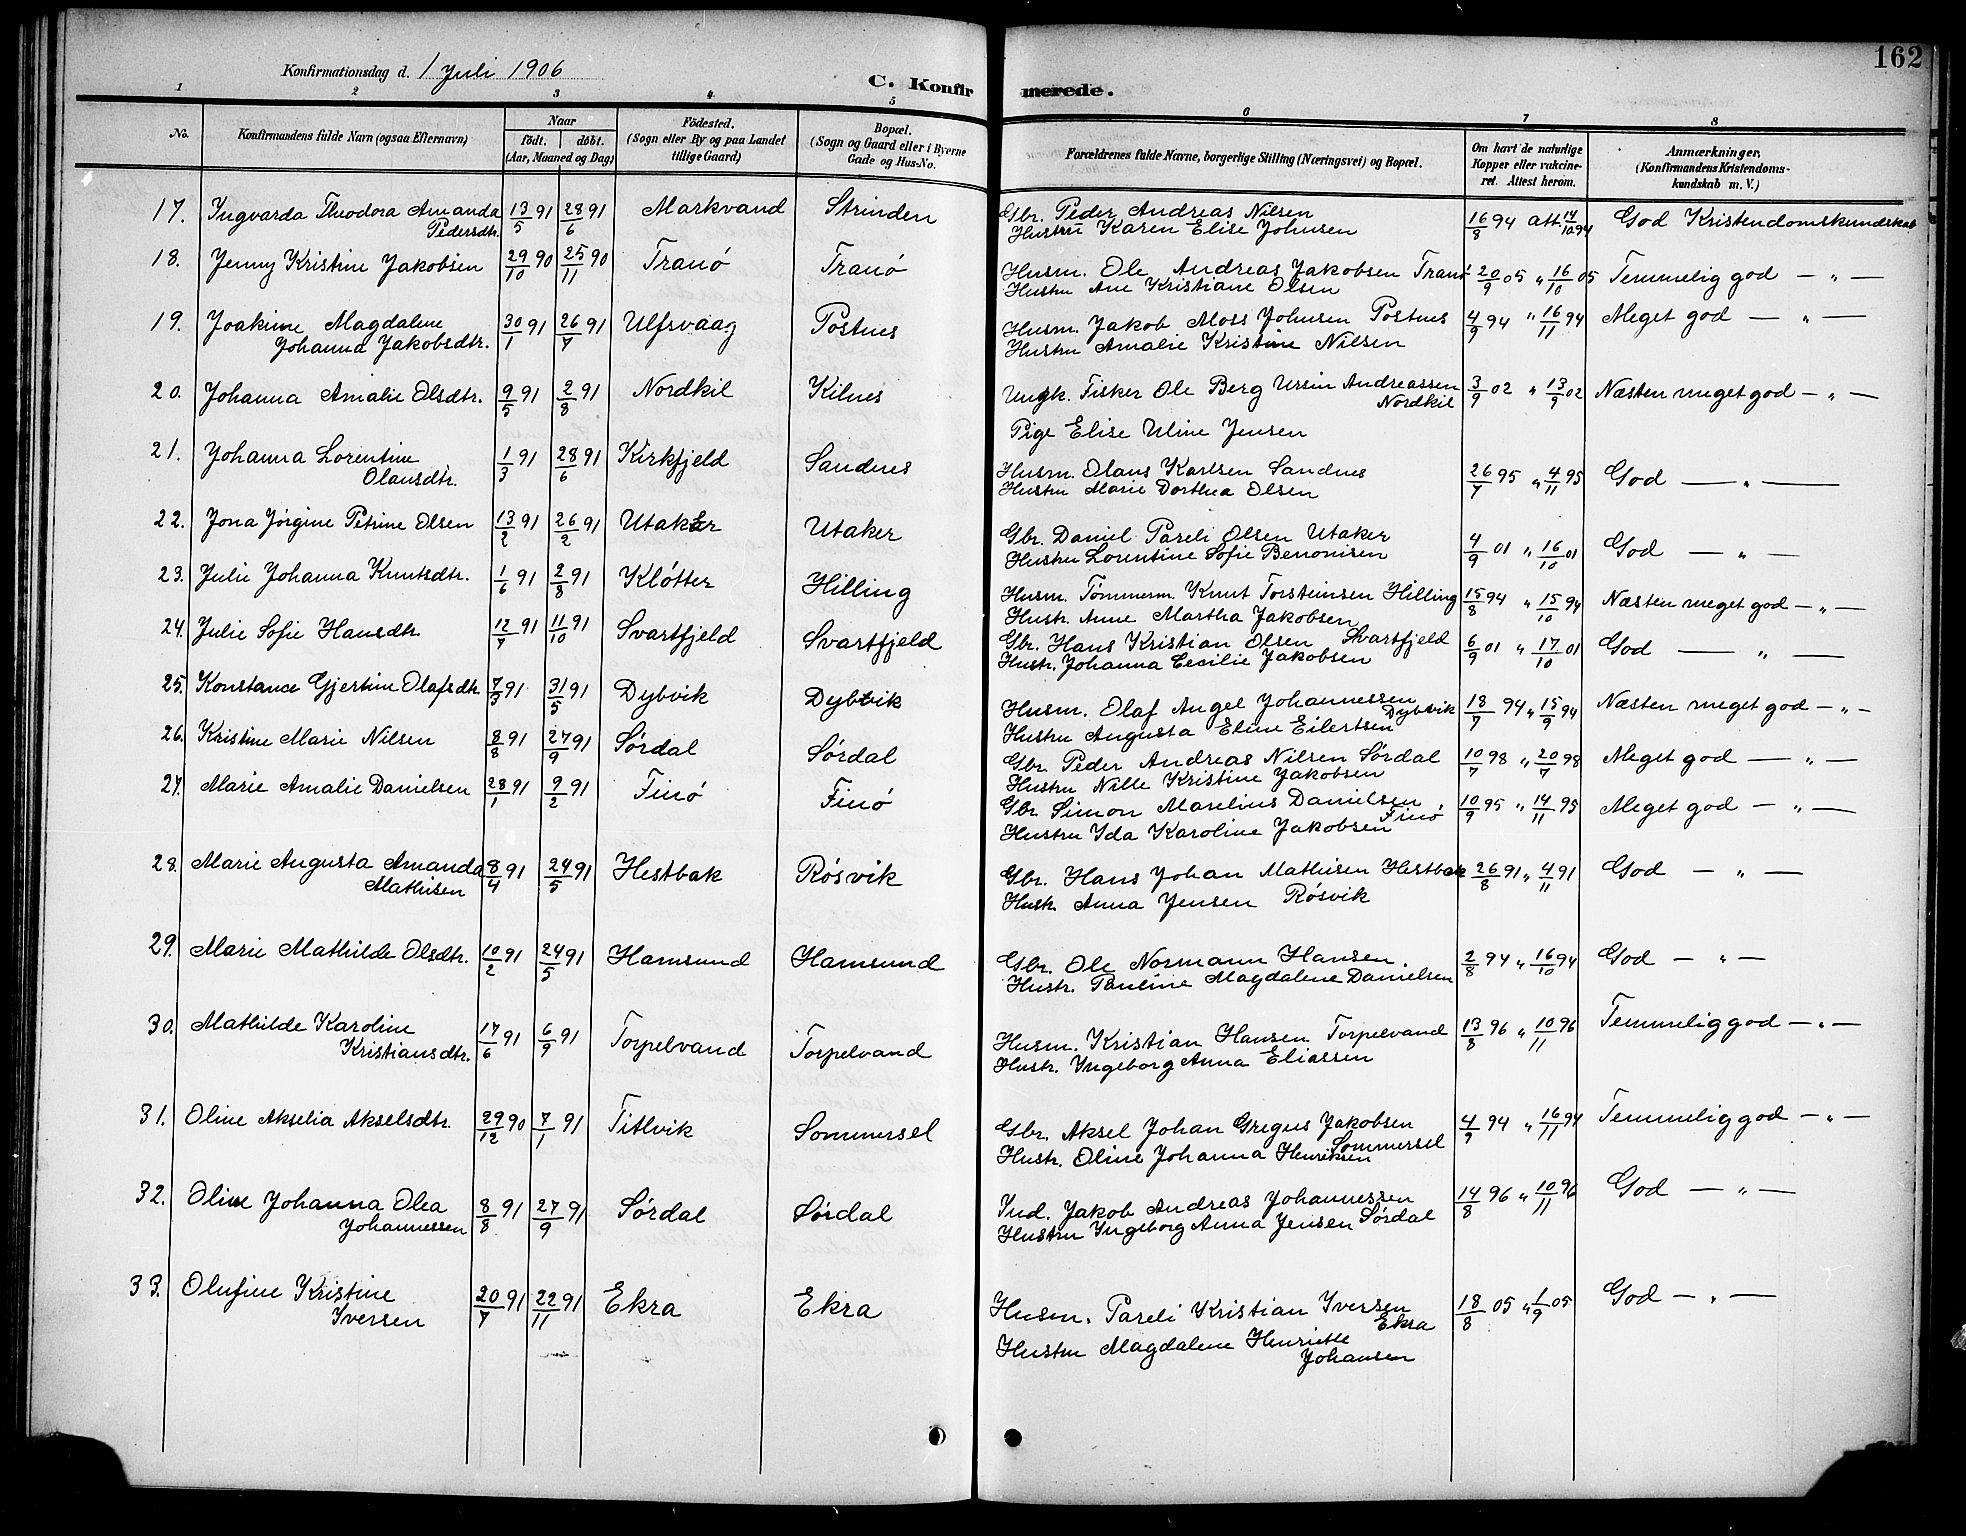 162
Konfirmationsdag d. 1 Juli 1906
C. Konfirmerede.
1 2 3 4 5 6 7 8
No.
Konfirmandens fulde Navn (ogsaa Efternavn)
Naar
født. døbt.
(Aar, Maaned og Dag)
Fødested.
(Sogn eller By og paa Landet
tillige Gaard)
Bopæl.
(Sogn og Gaard eller i Byerne
Gade og Hus-No.
Forældrenes fulde Navne, borgerlige Stilling (Næringsvei) og Bopæl.
Om havt de naturlige
Kopper eller vakcine-
ret. Attest herom.
Anmærkninger.
(Konfirmandens Kristendoms-
kundskab m. V.)
17. Ingvarda Theodora Amanda 13/5 91 28/6 91 Markvand Strinden Gbr. Peder Andreas Nilsen 16/8 94 att. 14/10 94 God Kristendomskundskab
Pedersdtr. Hustru Karen Elise Johnsen
18. Jenny Kristine Jakobsen 29/10 90 25/11 90 Tranö Tranö Husm. Ole Andreas Jakobsen Tranö 20/9 05 " 16/10 05 Temmelig god — " —
Hustru Ane Kristiane Olsen
19. Joakime Magdalene 30/1 91 26/7 91 Ulfsvaag Postnes Husm. Jakob Moss Johnsen Postnes 4/9 94 " 16/11 94 Meget god — " —
Johanna Jakobsdtr. Hustru Amalie Kristine Nilsen
20. Johanna Amalie Olsdtr. 9/5 91 2/8 91 Nordkil Kilnes Ungk. Fisker Ole Berg Ursin Andreassen 3/9 02 " 13/9 02 Næsten meget god — " —
Nordkil
Pige Elise Uline Jensen
21. Johanna Lorentine 1/3 91 28/6 91 Kirkfjeld Sandnes Husm. Olans Karlsen Sandnes 26/7 95 " 4/11 95 God — " —
Olausdtr. Hustru Marie Dorthea Olsen
22. Jona Jörgine Petrine Olsen 13/2 91 26/2 91 Utaker Utaker Gbr. Daniel Pareli Olsen Utaker 4/9 01 " 16/10 01 God — " —
Hustru Lorentine Sofie Benonisen
23. Julie Johanna Knutsdtr. 1/6 91 2/8 91 Klötter Hilling Husm. Tømmerm. Knut Torsteinsen Hilling 15/8 94 " 15/10 94 Næsten meget god — " —
Hustr. Anne Martha Jakobsen
24. Julie Sofie Hansdtr. 12/7 91 11/10 91 Svartfjeld Svartfjeld Gbr. Hans Kristian Olsen Svartfjeld 6/9 01 " 17/10 01 God — " —
Hustr. Johanna Cecilie Jakobsen
25. Konstance Gjertine Olafsdtr. 7/3 91 31/5 91 Dybvik Dybvik Husm. Olaf Angel Johannessen 18/7 94 " 15/9 94 Næsten meget god — " —
Dybvik
Hustru Augusta Eline Eilertsen
26. Kristine Marie Nilsen 8/8 91 27/9 91 Sørdal Sørdal Gbr. Peder Andreas Nilsen Sørdal 10/7 98 " 20/7 98 Meget god — " —
Hustru Nille Kristine Jakobsen
27. Marie Amalie Danielsen 28/1 91 9/2 91 Finö Finö Gbr Simon Marelius Danielsen, 10/9 95 " 14/11 95 Meget god — " —
Finö
Hustru Ida Karoline Jakobsen
28. Marie Augusta Amanda 8/4 91 24/5 91 Hestbak Rösvik Gbr. Hans Johan Mathisen Hestbak 26/8 91 " 4/11 91 God — " —
Mathisen Hustr. Anna Jensen Rösvik
29. Marie Mathilde Olsdtr. 10/2 91 24/5 91 Hamsund Hamsund Gbr. Ole Normann Hansen. 2/8 94 " 16/10 94 God — " —
Hustr. Pauline Magdalene Danielsen
30. Mathilde Karoline 17/6 91 6/9 91 Torpelvand Torpelvand Husm. Kristian Hansen Torpelvand 13/8 96 " 10/11 96 Temmelig god — " —
Kristiansdtr. Hustr. Ingeborg Anna Eliassen
31. Oline Akselia Akselsdtr. 29/12 90 7/1 91 Titlvik Sommersel Gbr. Aksel Johan Gregus Jakobsen 4/9 94 " 16/11 94 Temmelig god — " —
Sommersel
Hustr. Oline Johanna Henriksen
32. Oline Johanna Olea 8/8 91 27/9 91 Sørdal Sørdal Ind. Jakob Andreas Johannessen 14/8 96 " 10/11 96 God — " —
Johannessen Hustru Ingeborg Anna Jensen Sørdal
33. Olufine Kristine 20/7 91 22/11 91 Ekra Ekra Husm. Pareli Kristian Iversen 18/8 05 " 1/9 05 God — " —
Iversen Ekra
Hustru Magdalene Henriette
Johansen